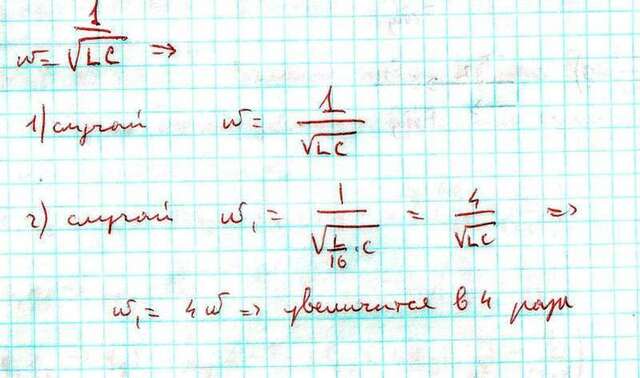 w = 1/√LC ⇒
1) случай w = 1/√LC
2) случай w₁ = 1/√(L/16 · C) = 4/√LC ⇒
w₁ = 4w ⇒ увеличится в 4 раза